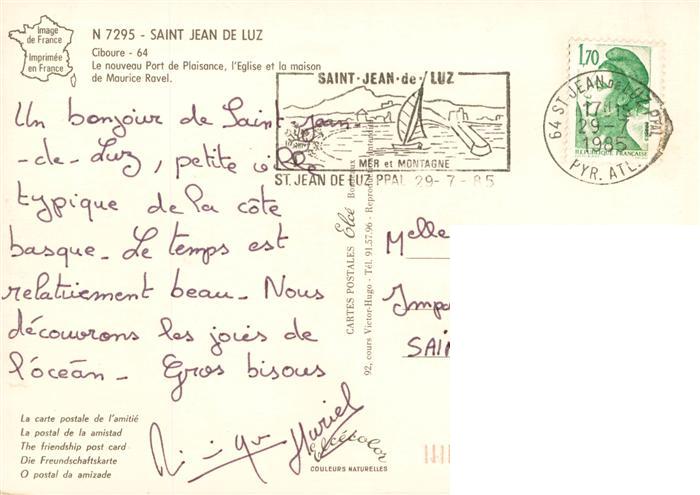 Image
de France
Imprimée
en France
N 7295 - SAINT JEAN DE LUZ
Ciboure - 64
Le nouveau Port de Plaisance, l'Eglise et la maison
de Maurice Ravel.
SAINT-JEAN-de-LUZ
MER et MONTAGNE
ST. JEAN DE LUZ PPAL 29-7-85
1,70
64 ST-JEAN de LUZ PPAL
17H
29-7
1985
PYR. ATL.
REPUBLIQUE FRANÇAISE
Un bonjour de Saint-Jean-
-de-Luz, petite ville
typique de la côte
basque. Le temps est
relativement beau. Nous
découvrons les joies de
l'océan. Gros bisous
Muriel
CARTES POSTALES Elcé Bordeaux
92, cours Victor-Hugo - Tél. 91.57.96 - Reproduction interdite
Melle
Impa
SAIN
La carte postale de l'amitié
La postal de la amistad
The friendship post card
Die Freundschaftskarte
O postal da amizade
elcécolor
COULEURS NATURELLES